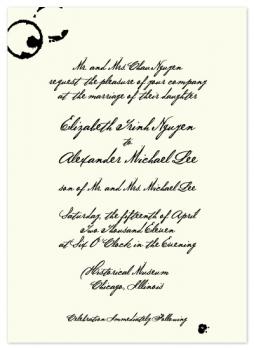 Mr. and Mrs. Chau Nguyen
request the pleasure of your company
at the marriage of their daughter
Elizabeth Trinh Nguyen
to
Alexander Michael Lee
son of Mr. and Mrs. Michael Lee
Saturday, the fifteenth of April
Two Thousand Eleven
at Six O'Clock in the Evening
Historical Museum
Chicago, Illinois
Celebration Immediately Following